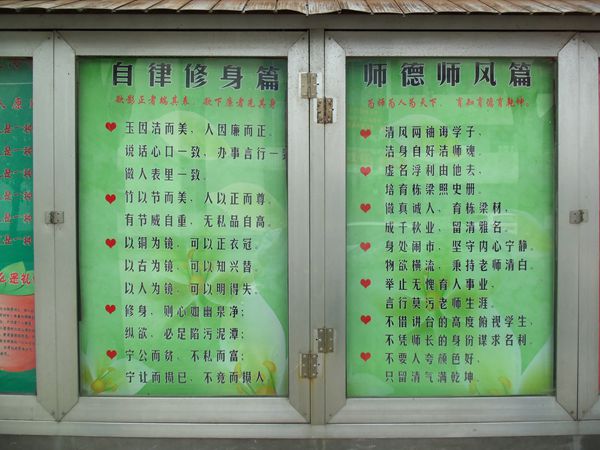 自律修身篇
欲影正者端其表，欲下廉者先其身
玉因洁而美，人因廉而正。
说话心口一致，办事言行一致
做人表里一致。
竹以节而美，人以正而尊。
有节威自重，无私品自高。
以铜为镜，可以正衣冠。
以古为镜，可以知兴替。
以人为镜，可以明得失。
修身，则心如幽泉净；
纵欲，必足陷污泥潭；
宁公而贫，不私而富；
宁让而损已，不竞而损人
师德师风篇
为师为人为天下，育知育德育乾坤。
清风网袖诲学子，
洁身自好洁师魂。
虚名浮利由他去，
培育栋梁照史册。
做真诚人，育栋梁材，
成千秋业，留清雅名。
身处闹市，坚守内心宁静。
物欲横流，秉持老师清白。
举止无愧育人事业，
言行莫污老师生涯。
不借讲台的高度俯视学生，
不凭师长的身份谋求名利。
不要人夸颜色好，
只留清气满乾坤。